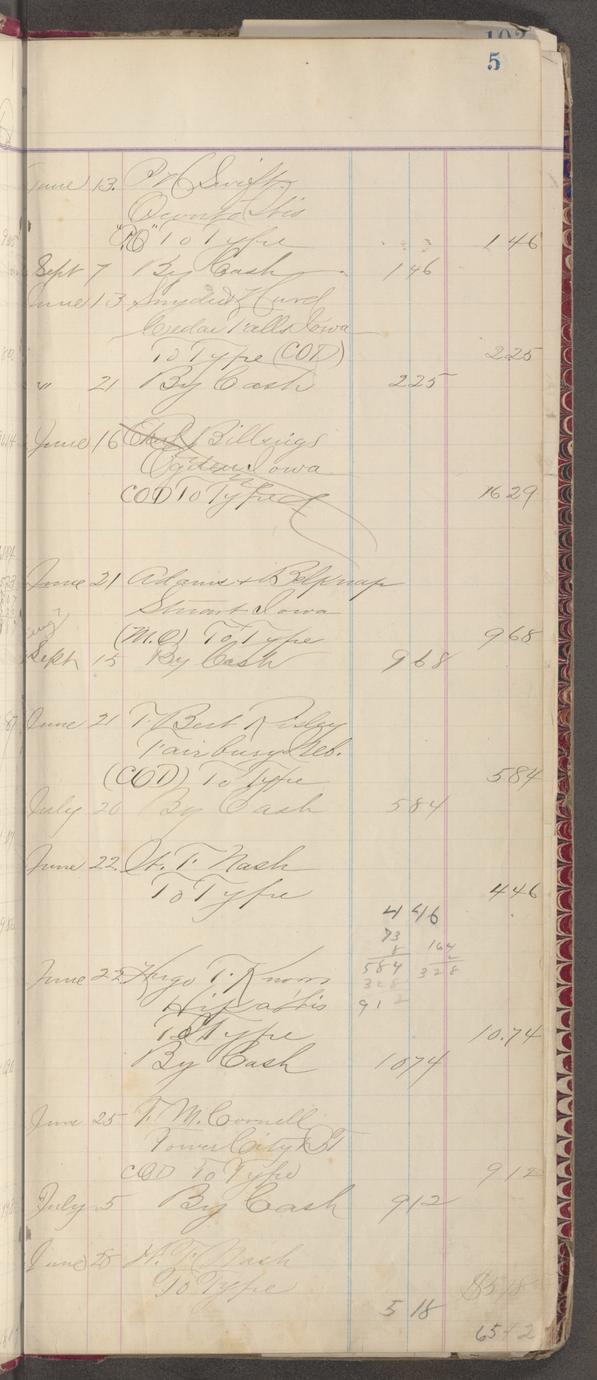 103
5
June 13. P H Swift
Oconto Wis
To Type 146
Sept 7 By Cash 146
June 13 Snyder & Hurd
Cedar Falls Iowa
To Type (COD) 225
" 21 By Cash 225
June 16 Chas Billings
Ogden Iowa
COD To Type 16 29
June 21 Adams & Belknap
Stuart Iowa
(M.O.) To Type 968
Sept 15 By Cash 968
June 21 T. Best
Fairbury Neb.
(COD) To Type 584
July 20 By Cash 584
June 22. H. T. Nash
To Type 446
446
73
8 164
2
584 328
328
912
June 22 Hugo T.
Wis
To Type 10.74
By Cash 1074
June 25 T. M. Cornell
Tower City DT
COD To Type 912
July 5 By Cash 912
June 28 H. T. Nash
To Type 518
518
65 12